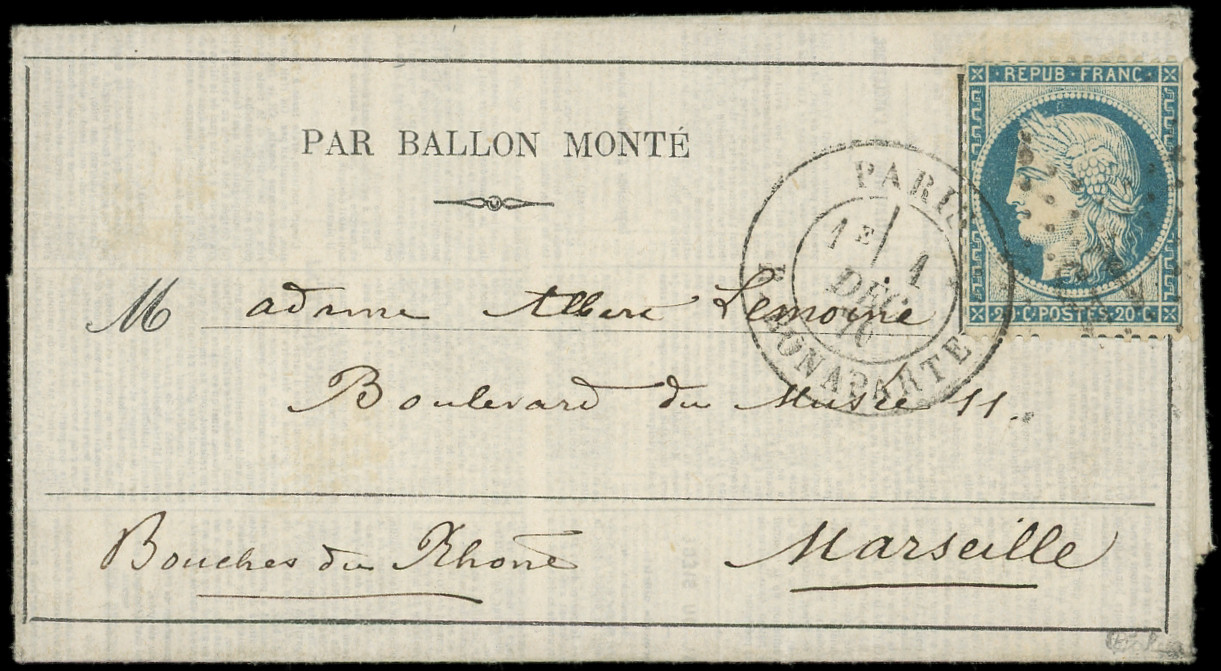 REPUB·FRANC·
PAR BALLON MONTÉ
PARIS
1E / 1
DÉC.
70
R. BONAPARTE
20·C·POSTES·20·C
Madame Albert Lemoine
Boulevard du Musée 11.
Bouches du Rhône Marseille